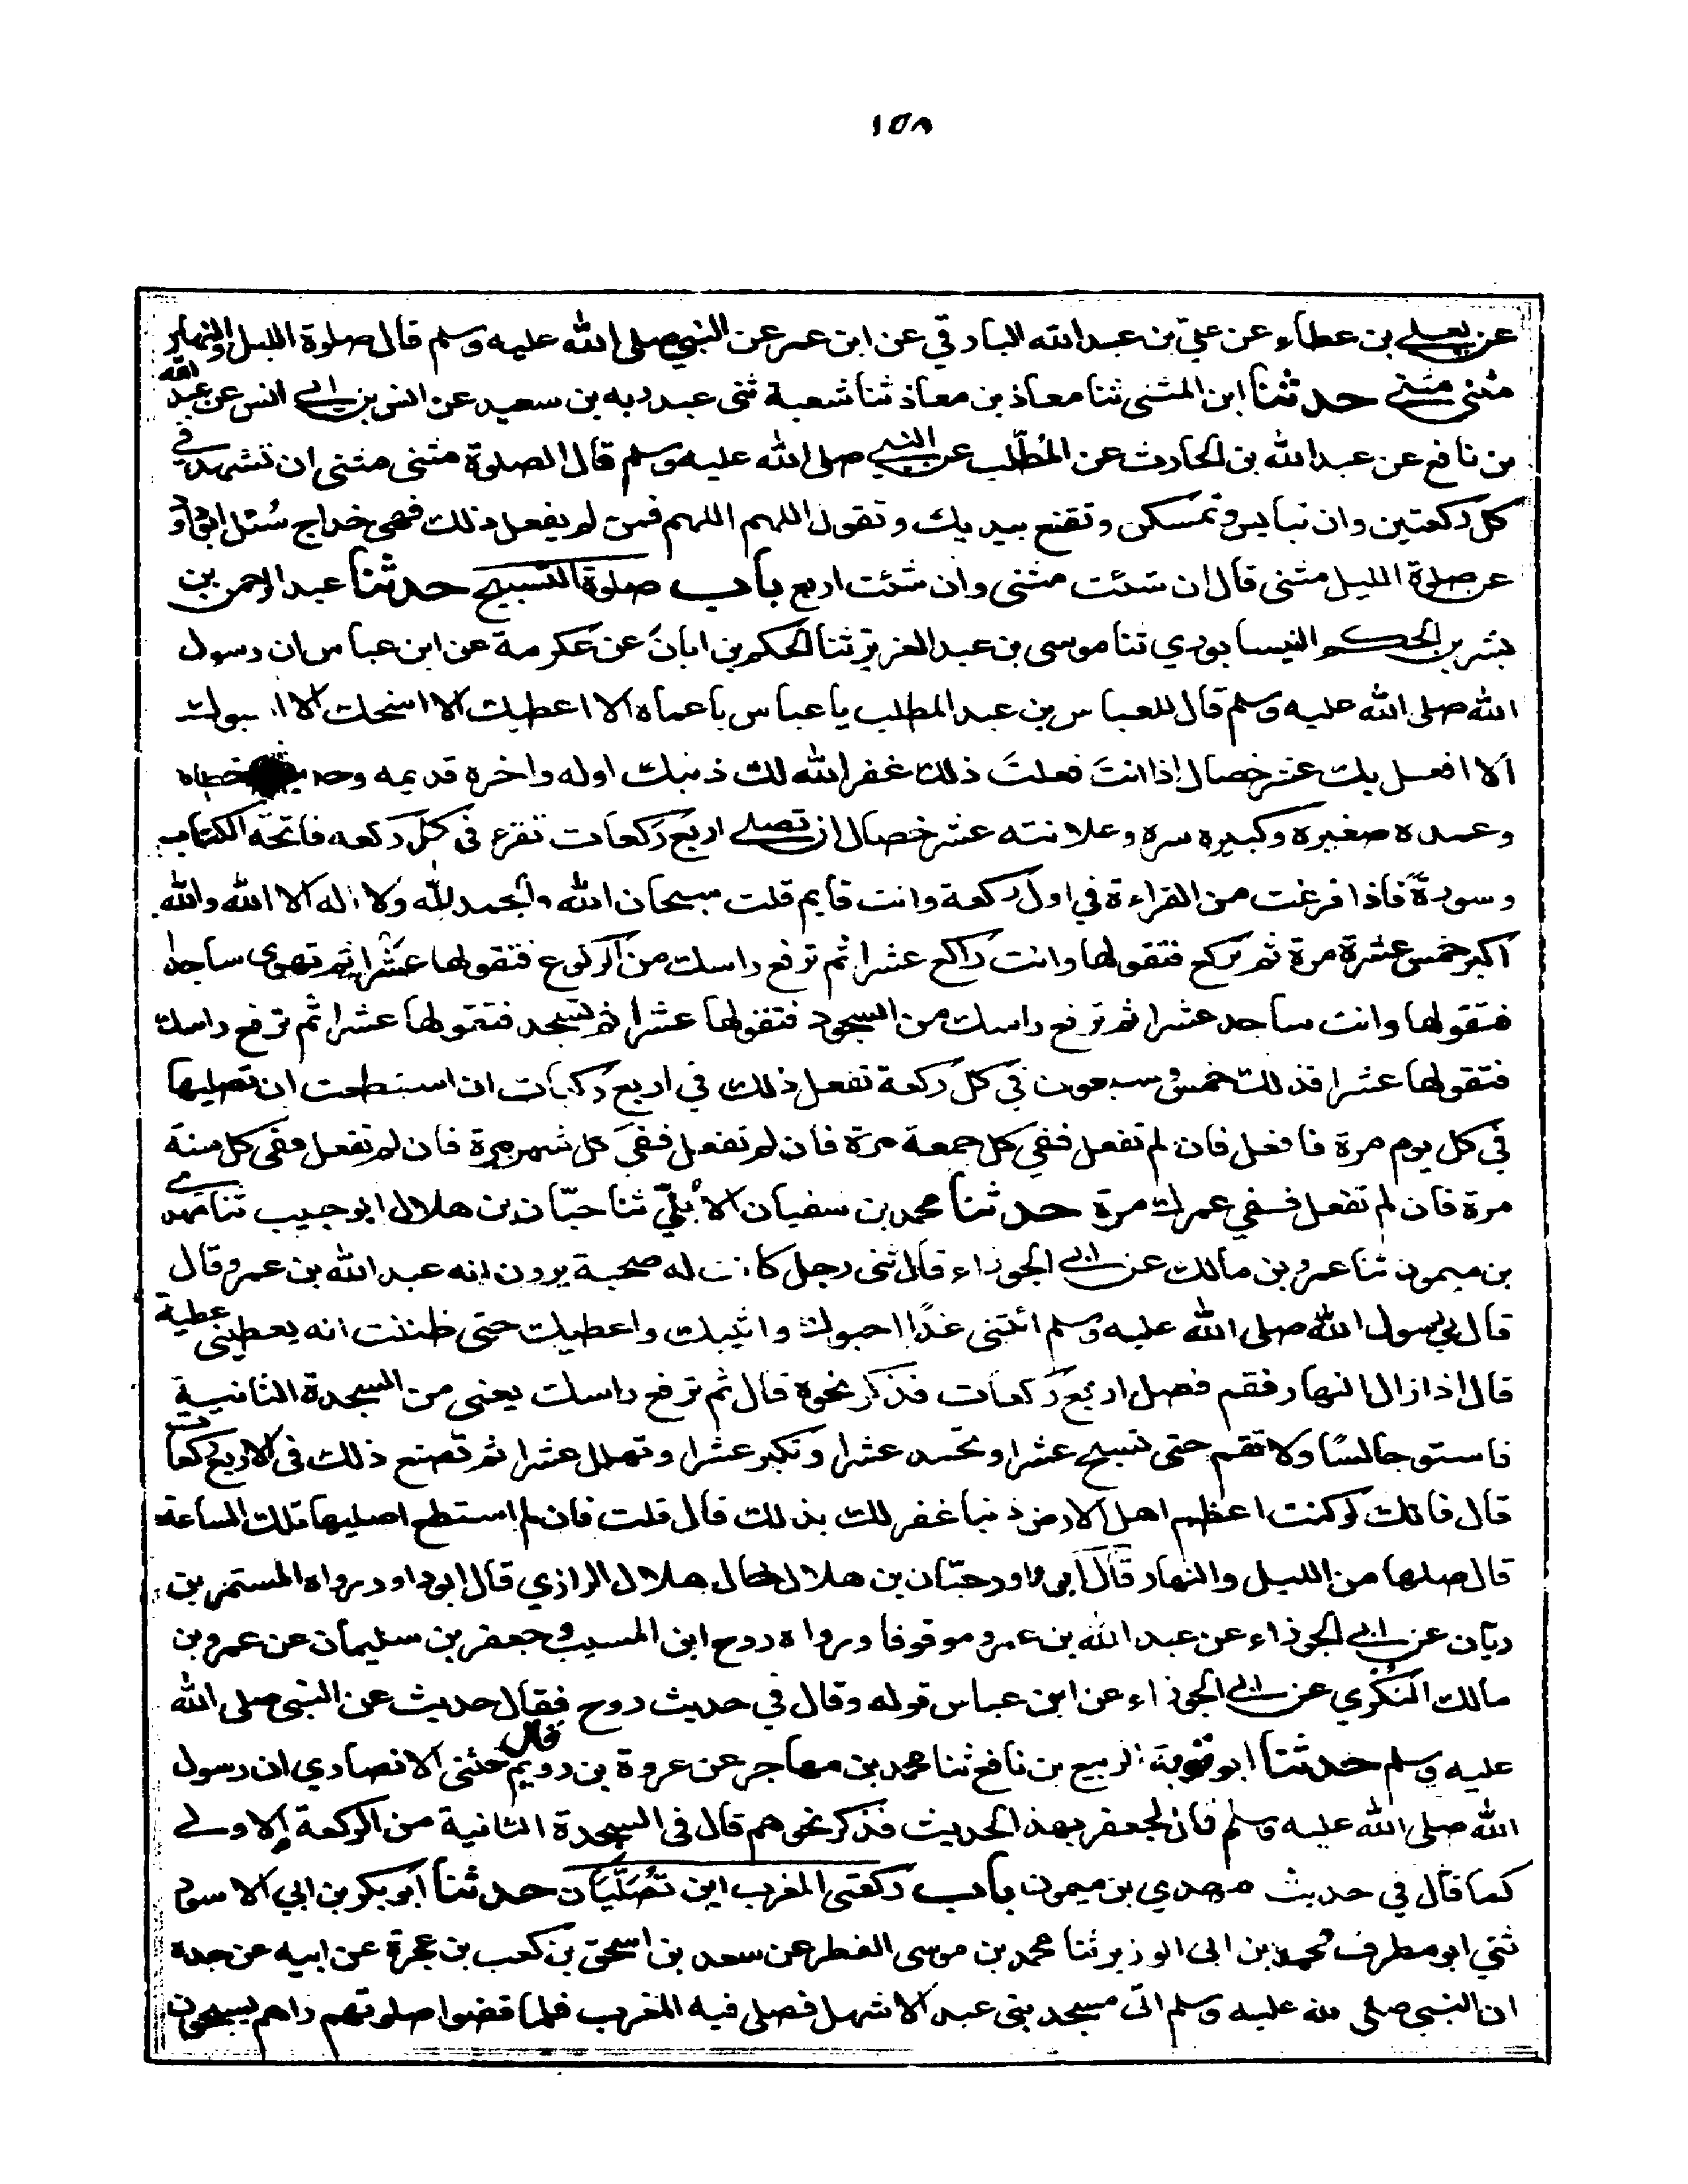 ١٥٨
عن يعلى بن عطاء عن علي بن عبد الله البارقي عن ابن عمر عن النبي صلى الله عليه وسلم قال صلوة الليل والنهار
مثنى مثنى حدثنا ابن المثنى ثنا معاذ بن معاذ ثنا شعبة ثنى عبد ربه بن سعيد عن انس بن ابي انس عن عبد الله
بن نافع عن عبد الله بن الحارث عن المُطّلب عن النبي صلى الله عليه وسلم قال الصلوة مثنى مثنى ان تشهد في
كل ركعتين وان تبايس وتمسكن وتقنع بيديك وتقول اللهم اللهم فمن لم يفعل ذلك فهى خداج سُئل ابو داود
عن صلوة الليل مثنى قال ان شئت مثنى وان شئت اربع باب صلوة التسبيح حدثنا عبد الرحمن بن
بشر بن الحكم النيسابوري ثنا موسى بن عبد العزيز ثنا الحكم بن ابان عن عكرمة عن ابن عباس ان رسول
الله صلى الله عليه وسلم قال للعباس بن عبد المطلب يا عباس يا عماه الا اعطيك الا امنحك الا احبوك
الا افعل بك عشر خصال اذا انت فعلت ذلك غفر الله لك ذنبك اوله واخره قديمه وحديثه خطاه
وعمده صغيره وكبيره سره وعلانته عشر خصال ان تصلى اربع ركعات تقرء في كل ركعه فاتحة الكتاب
وسورة فاذا فرغت من القراءة في اول ركعة وانت قايم قلت سبحان الله والحمد لله ولا اله الا الله والله
اكبر خمس عشرة مرة ثم تركع فتقولها وانت راكع عشرا ثم ترفع راسك من الركوع فتقولها عشرا ثم تهوى ساجدا
فتقولها وانت ساجد عشرا ثم ترفع راسك من السجود فتقولها عشرا ثم تسجد فتقولها عشرا ثم ترفع راسك
فتقولها عشرا فذلك خمس وسبعون في كل ركعة تفعل ذلك في اربع ركعات ان استطعت ان تصليها
في كل يوم مرة فافعل فان لم تفعل ففي كل جمعة مرة فان لم تفعل ففي كل شهر مرة فان لم تفعل ففى كل سنة
مرة فان لم تفعل ففي عمرك مرة حدثنا محمد بن سفيان الاُبُلّيّ ثنا حبّان بن هلال ابو حبيب ثنا مهدي
بن ميمون ثنا عمرو بن مالك عن ابي الجوزاء قال ثنى رجل كانت له صحبة يرون انه عبد الله بن عمرو قال
قال لي رسول الله صلى الله عليه وسلم ائتنى غدًا احبوك واثيبك واعطيك حتى ظننت انه يعطينى عطية
قال اذا زال النهار فقم فصل اربع ركعات فذكر نحوه قال ثم ترفع راسك يعنى من السجدة الثانية
فاستو جالسًا ولا تقم حتى تسبح عشرا وتحمد عشرا وتكبر عشرا وتهلل عشرا ثم تصنع ذلك في الاربع ركعات
قال فانك لو كنت اعظم اهل الارض ذنبا غفر لك بذلك قال قلت فان لم استطع اصليها تلك الساعة
قال صلها من الليل والنهار قال ابو داود حبّان بن هلال خال هلال الرازي قال ابو داود رواه المستمر بن
ريّان عن ابي الجوزاء عن عبد الله بن عمرو موقوفا ورواه روح ابن المسيب وجعفر بن سليمان عن عمرو بن
مالك النُكري عن ابي الجوزاء عن ابن عباس قوله وقال في حديث روح فقال حديث عن النبى صلى الله
عليه وسلم حدثنا ابو توبة الربيع بن نافع ثنا محمد بن مهاجر عن عروة بن رويم قال حدثنى الانصاري ان رسول
الله صلى الله عليه وسلم قال لجعفر بهذا الحديث فذكر نحوهم قال في السجدة الثانية من الركعة الاولى
كما قال في حديث مهدي بن ميمون باب ركعتي المغرب اين تُصَلّيَان حدثنا ابو بكر بن ابي الاسود
ثني ابو مطرف محمد بن ابى الوزير ثنا محمد بن موسى الفطر عن سعد بن اسحق بن كعب بن عجرة عن ابيه عن جده
ان النبي صلى الله عليه وسلم اتى مسجد بنى عبد الاشهل فصلى فيه المغرب فلما قضوا صلوتهم راهم يسبحون